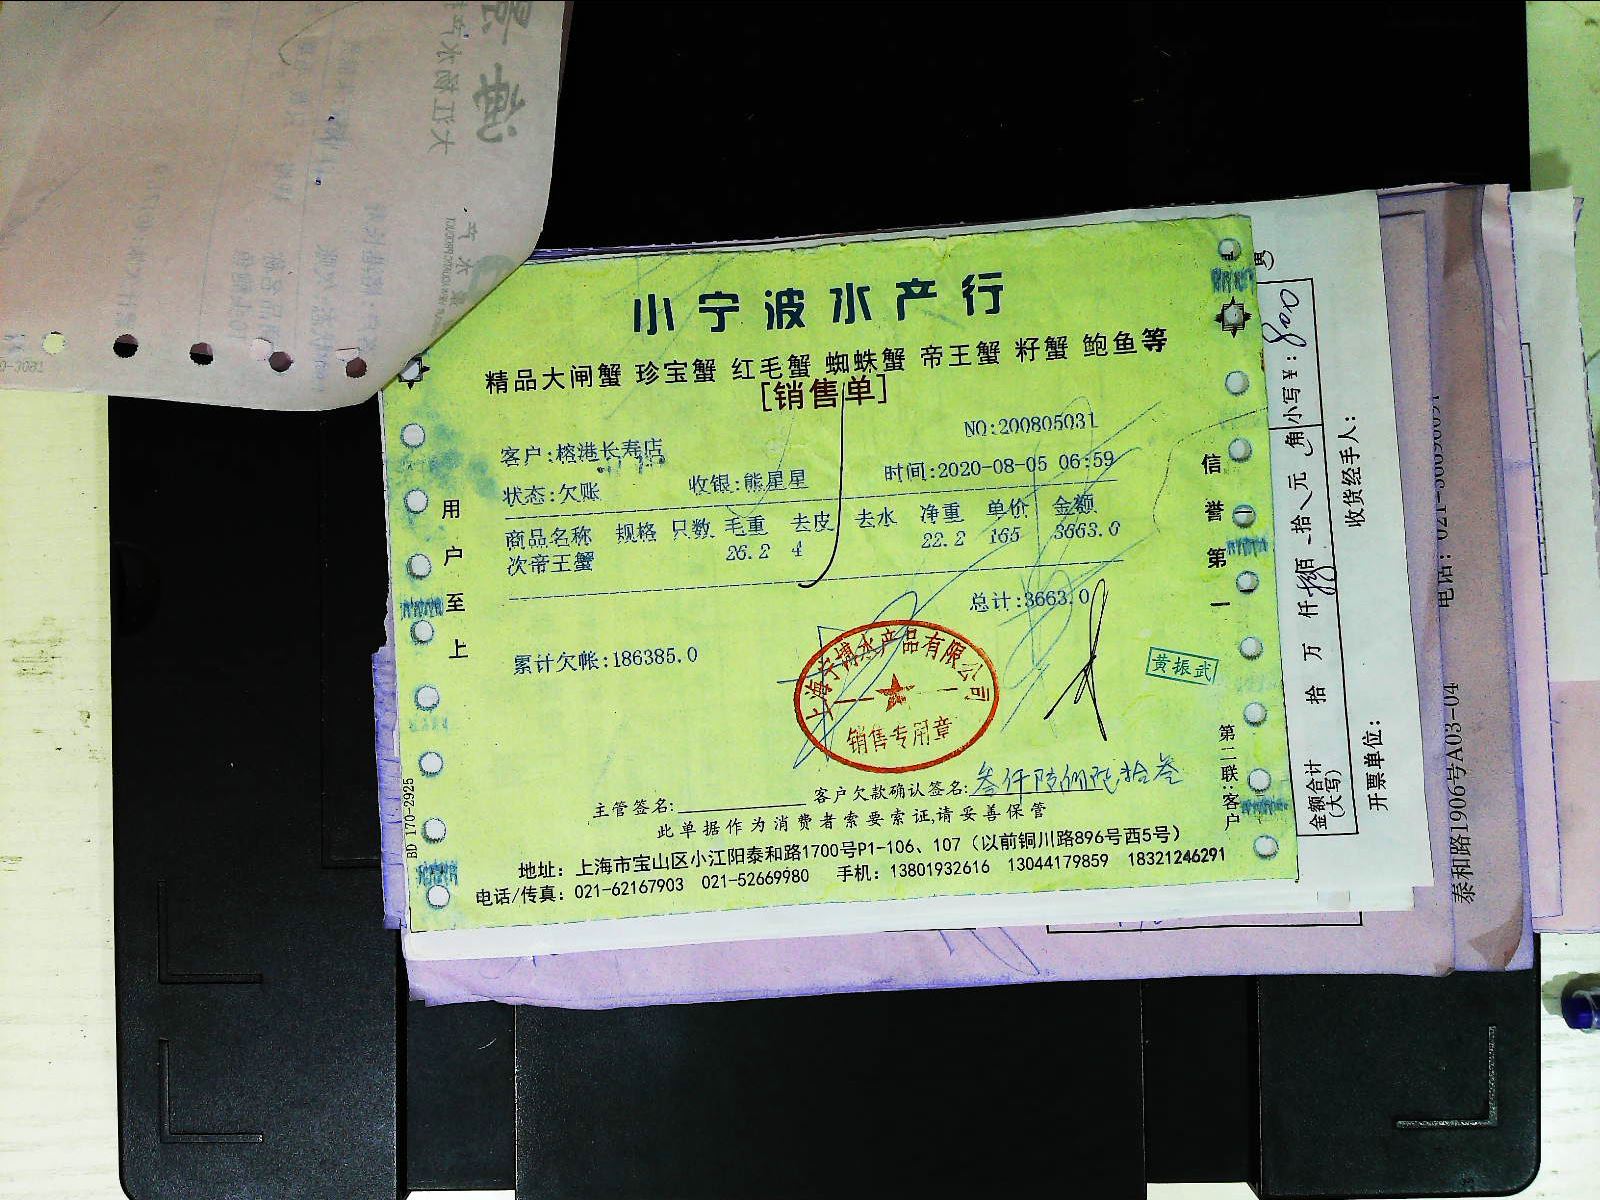 小宁波水产行
精品大闸蟹 珍宝蟹 红毛蟹 蜘蛛蟹 帝王蟹 籽蟹 鲍鱼等
[销售单]
NO:200805031
客户:榕港长寿店
状态:欠账 收银:熊星星 时间:2020-08-05 06:59
商品名称 规格 只数 毛重 去皮 去水 净重 单价 金额
次帝王蟹 26.2 4 22.2 165 3663.0
总计:3663.0
累计欠帐:186385.0
销售专用章
黄振武
主管签名: 客户欠款确认签名:叁仟陆佰陆拾叁
此单据作为消费者索要索证,请妥善保管
地址：上海市宝山区小江阳泰和路1700号P1-106、107（以前铜川路896号西5号）
电话/传真：021-62167903 021-52669980 手机：13801932616 13044179859 18321246291
用户至上
信誉第一
第二联:客户
BD 170-2925
金额合计(大写) 拾 万 仟 佰 拾 元 角 小写¥:
开票单位: 收货经手人:
泰和路1906号A03-04 电话: